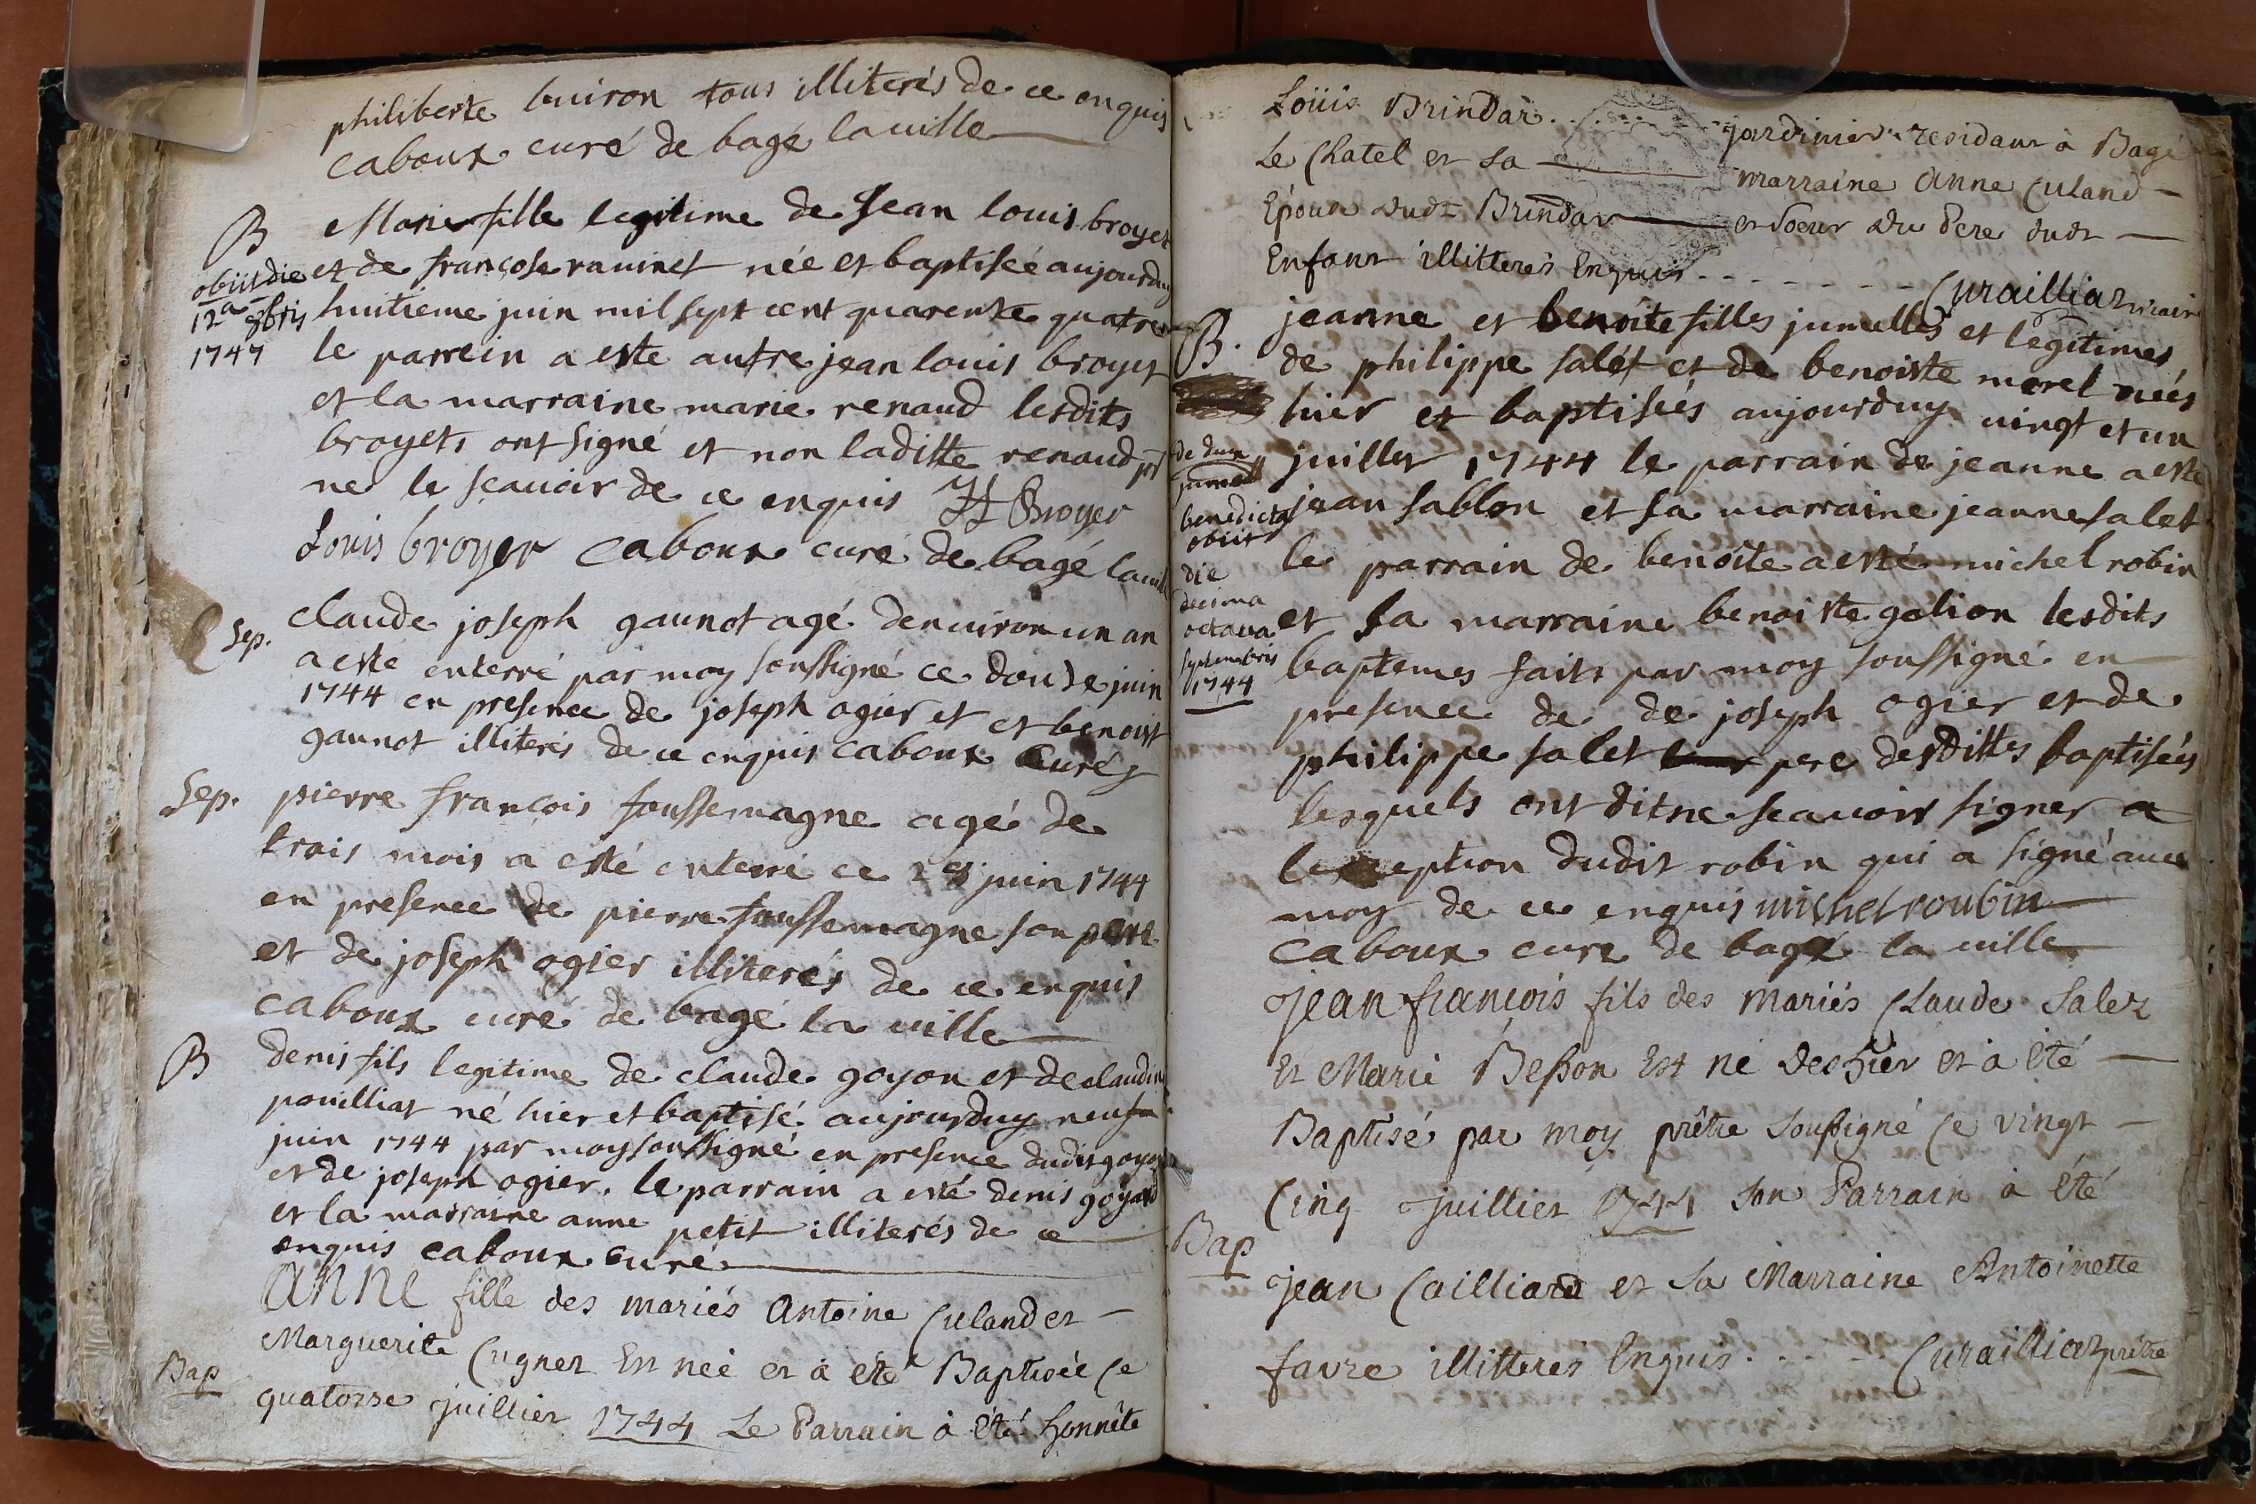 philiberte buiron tous illiterés de ce enquis
caboux curé de bagé la ville
B
Marie fille legitime de Jean louis broyer
obiit die
12a 8bris
1747
et de françose rauinet née et baptiseé aujourduy
huitieme juin mil sept cent quarente quatre
le parrein a este autre jean louis broyer
et la marraine marie renaud lesdits
broyets ont signé et non laditte renaud pr
ne le sçauoir de ce enquis JL Broyer
Louis broyer caboux curé de bagé la ville
Sep.
claude joseph gaunot agé denuiron un an
a este enterré par moy soussigné ce douze juin
1744 en presence de joseph ogier et et benoist
gaunot illiterés de ce enquis caboux curé
Sep.
pierre françois foussemagne agé de
trois mois a esté enterré ce juin 1744
en presence de pierre foussemagne son pere
et de joseph ogier illiterés de ce enquis
caboux curé de bagé la ville
B
denis fils legitime de claude goyon et de claudine
pouilliat né hier et baptisé aujourduy neuf
juin 1744 par moy soussigné en presence dudit goyon
et de joseph ogier. le parrain a esté denis goyard
et la marraine anne petit illiterés de ce
enquis caboux curé
ANNE fille des mariés Antoine Culand et
Marguerite Cugnet Est neé et à été Baptiseé ce
Bap
quatorse juillier 1744 Le Parrain à été honnête
Loüis Brindar jardinier residant à Bagé
Le Chatel et sa marraine Anne Culand
Epouse dudt Brindar et soeur du Pere dudt
Enfant illitterés Enquis Curailliat vicaire
B.
jeanne et benoite filles jumelles et legitimes
de philippe salet et de benoiste morel neés
hier et baptiseés aujourduy uingt et un
juillet 1744 le parrain de jeanne a esté
jean sablon et sa marraine jeanne salet
benedicta
obiit
die
decima
octaua
septembris
1744
le parrain de benoite a esté michel robin
et sa marraine benoiste galion lesdits
baptemes faits par moy soussigné en
presence de de joseph ogier et de
philippe salet pere desdittes baptiseés
lesquels ont dit ne scauoir signer a
lexception dudit robin qui a signé auec
moy de ce enquis michel roubin
caboux curé de bagé la uille
Jean françois fils des mariés Claude Salet
Et Marie Besson Est né des hier et à été
Baptisé par moy prêtre soussigné ce vingt
Cinq juillier 1744 son Parrain à été
Bap
Jean Cailliard et sa Marraine Antoinette
favre illitterés Enquis Curailliat prêtre